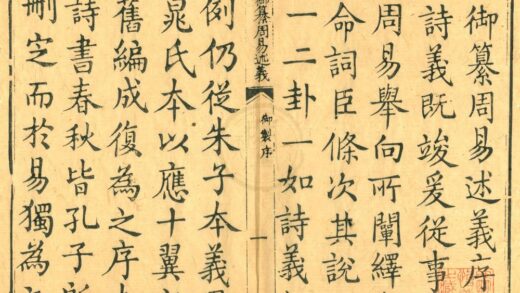 御纂周易述義序
詩義既竣爰從事
周易舉向所闡繹
命詞臣條次其說
一二卦一如詩義
御纂周易述義
御製序
一
例仍從朱子本義
晁氏本以應十翼
舊編成復為之序
詩書春秋皆孔子所
刪定而於易獨為